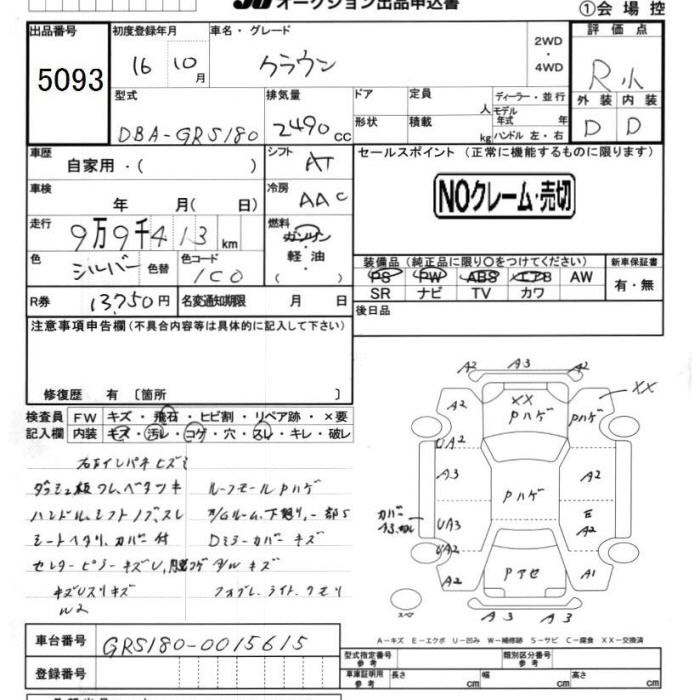 オークション出品申込書
①会場控
出品番号 初度登録年月 車名・グレード 2WD ・ 4WD 評価点
5093 16 10月 クラウン R小
型式 排気量 ドア 定員 人 ディーラー・並行 外装 内装
DBA-GRS180 2490cc 形状 積載 kg モデル年式 年 ハンドル 左・右 D D
車歴 自家用・( ) シフト AT セールスポイント (正常に機能するものに限ります)
車検 年 月( 日) 冷房 AAC NOクレーム・売切
走行 9万9千413km 燃料 ガソリン・軽油・( )
色 シルバー 色替 色コード 1C0 装備品 (純正品に限り○をつけてください) 新車保証書
PS PW ABS エアB AW 有・無
R券 13,750円 名変通知期限 月 日 SR ナビ TV カワ
注意事項申告欄(不具合内容等は具体的に記入して下さい) 後日品
修復歴 有 〔箇所 〕
検査員 FW キズ・飛石・ヒビ割・リペア跡・×要
記入欄 内装 キズ・汚レ・コゲ・穴・スレ・キレ・破レ
右右インパネ ヒズミ
ダッシュ板ワレ、ベタツキ ルーフモールPハゲ
ハンドル、シフトノブ、スレ
シートヘタリ、カバー付 Dミラーカバーキズ
キズ
フォグレ、ライト、クモリ
A2 A3 A2
A2 XX Pハゲ Pハゲ XX
UA2
A3 Pハゲ A2
カバー UA3 E A2
UA2
A2 Pアセ A1
A3 A3
スペア
A-キズ E-エクボ U-凹み W-補修跡 S-サビ C-腐食 XX-交換済
車台番号 GRS180-0015615 型式指定番号 参考 類別区分番号 参考
登録番号 車庫証明用 参考 長さ cm 幅 cm 高さ cm